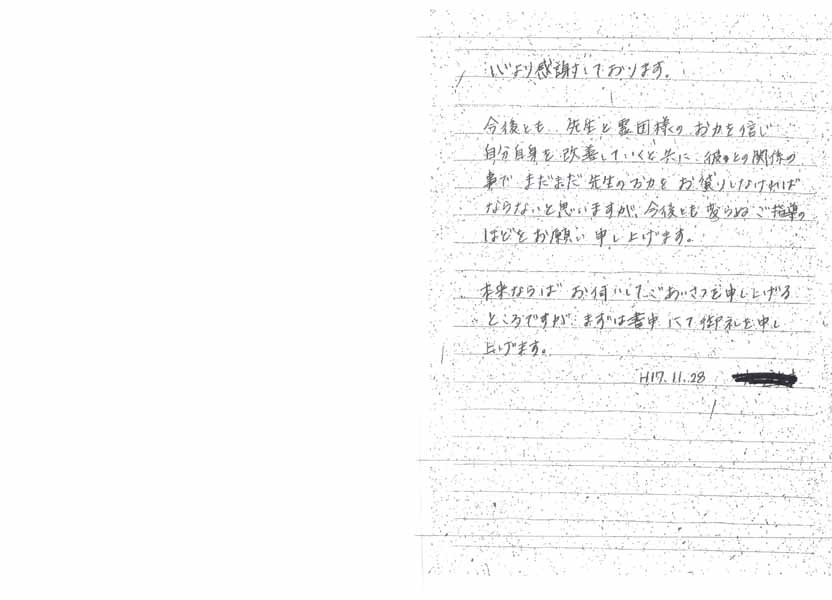 心より感謝しております。
今後とも、先生と霊団様のお力を信じ
自分自身を改善していくと共に、彼女との関係の
事で まだまだ先生のお力をお借りしなければ
ならないと思いますが、今後とも変らぬご指導の
ほどをお願い申し上げます。
本来ならば お伺いしてごあいさつを申し上げる
ところですが、まずは書中にて御礼を申し
上げます。
H17.11.28